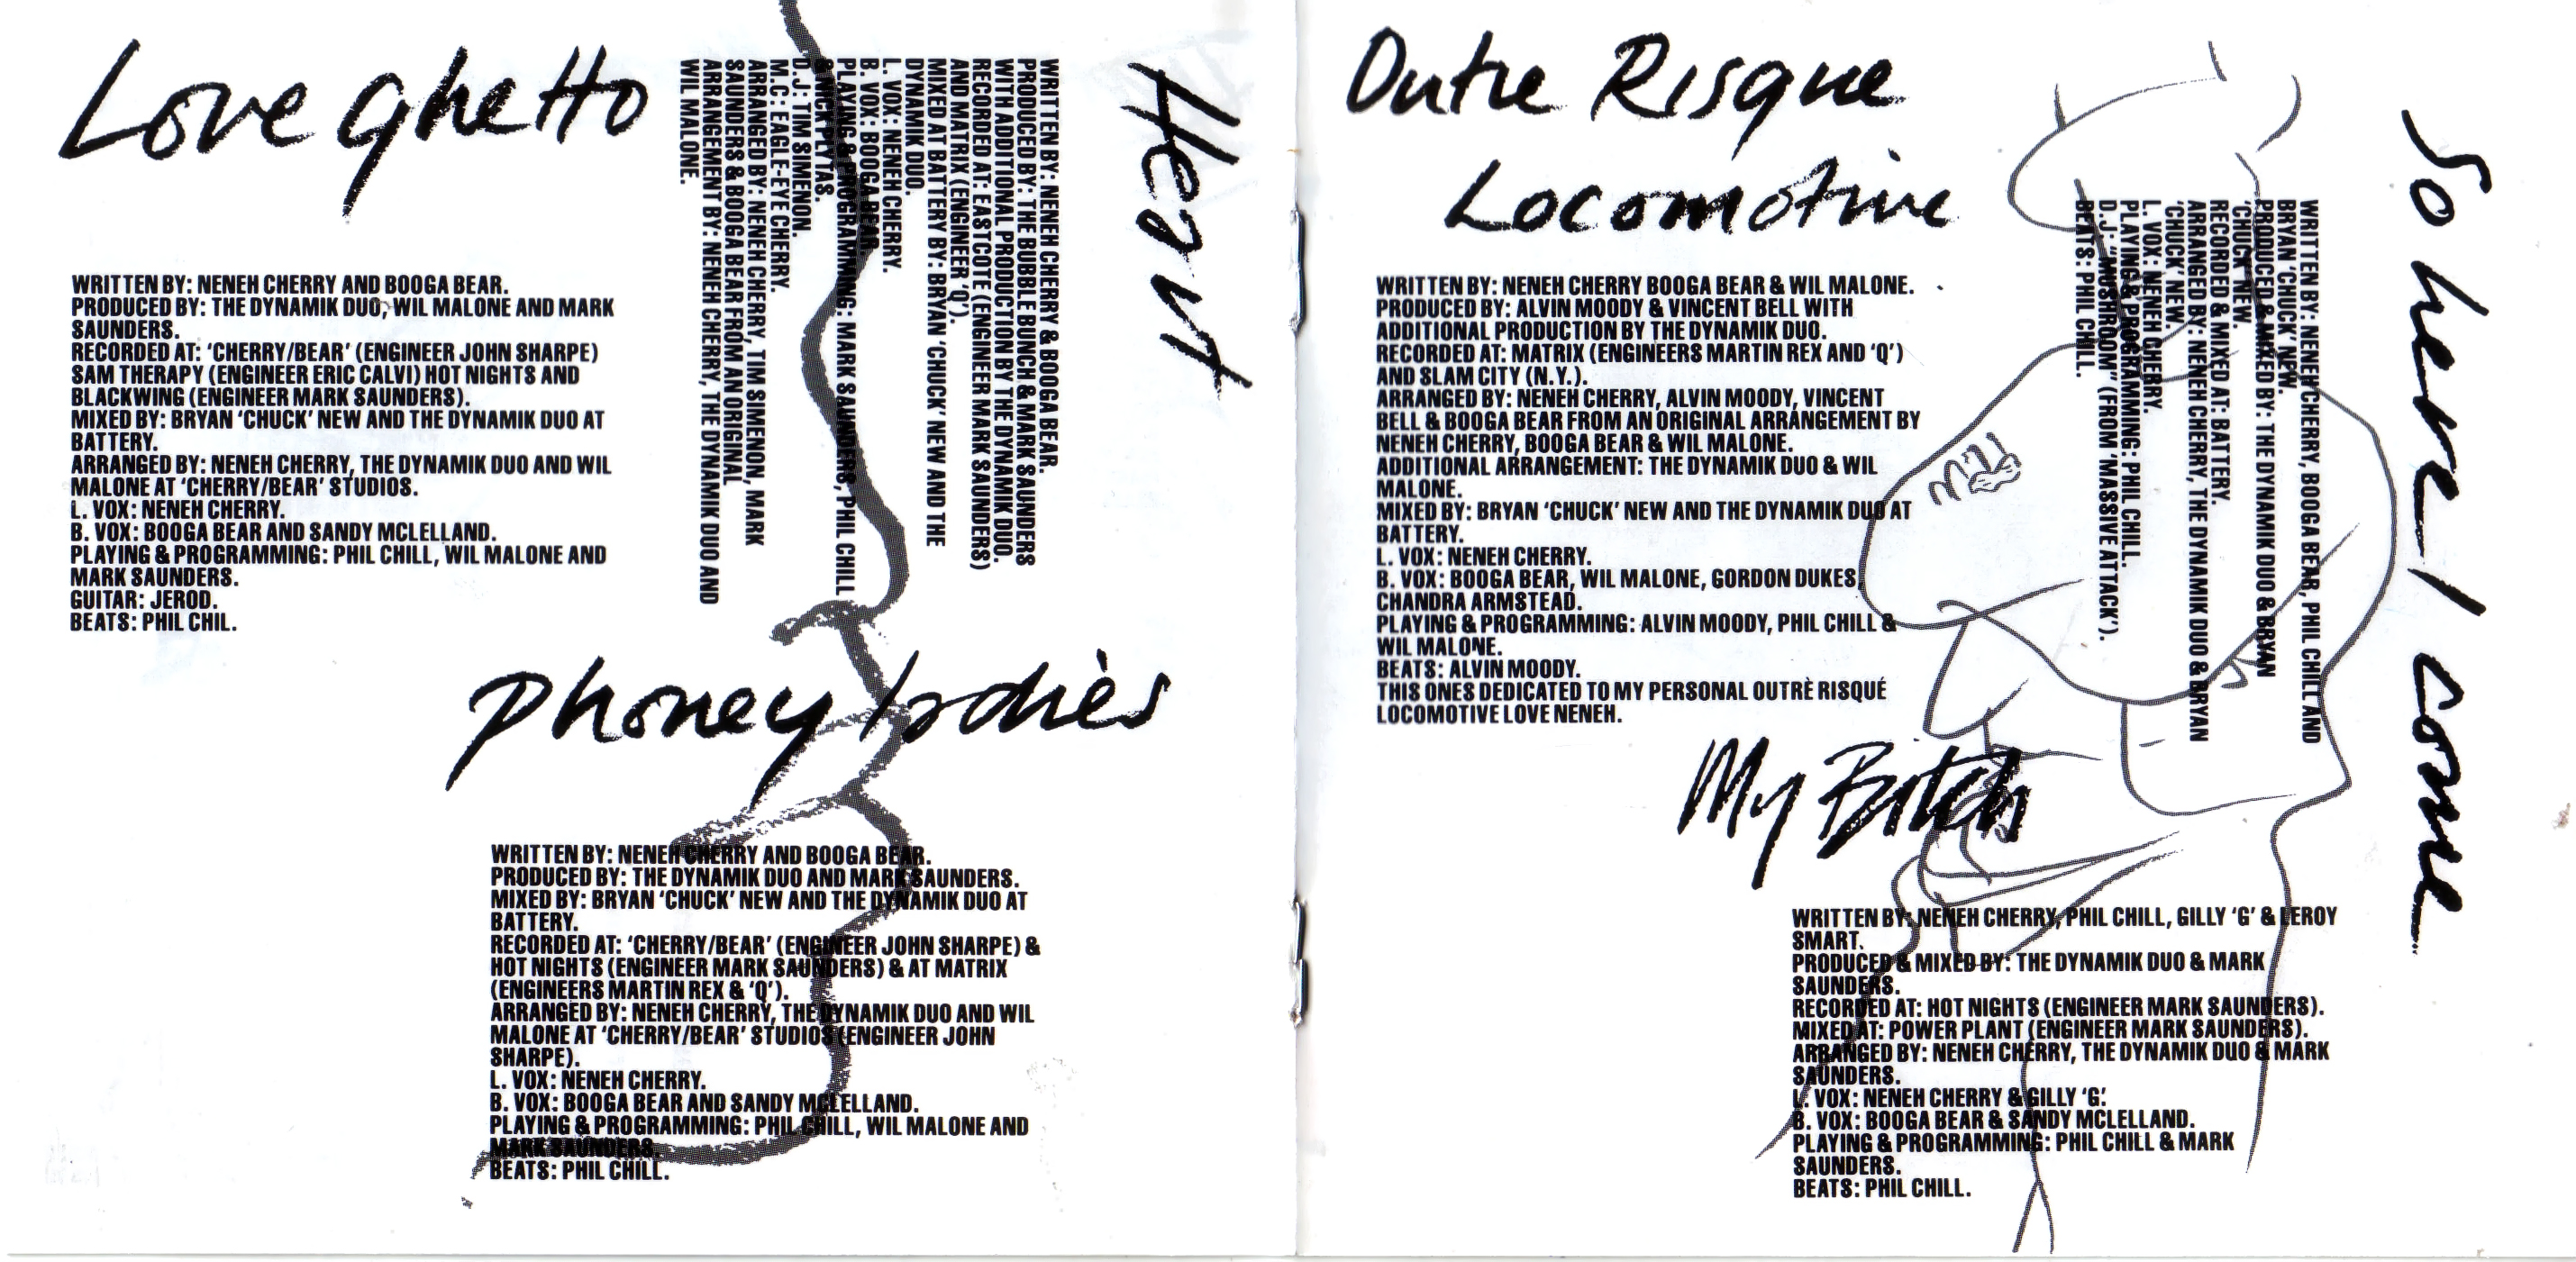 Love ghetto
WRITTEN BY: NENEH CHERRY AND BOOGA BEAR.
PRODUCED BY: THE DYNAMIK DUO, WIL MALONE AND MARK
SAUNDERS.
RECORDED AT: ‘CHERRY/BEAR’ (ENGINEER JOHN SHARPE)
SAM THERAPY (ENGINEER ERIC CALVI) HOT NIGHTS AND
BLACKWING (ENGINEER MARK SAUNDERS).
MIXED BY: BRYAN ‘CHUCK’ NEW AND THE DYNAMIK DUO AT
BATTERY.
ARRANGED BY: NENEH CHERRY, THE DYNAMIK DUO AND WIL
MALONE AT ‘CHERRY/BEAR’ STUDIOS.
L. VOX: NENEH CHERRY.
B. VOX: BOOGA BEAR AND SANDY MCLELLAND.
PLAYING & PROGRAMMING: PHIL CHILL, WIL MALONE AND
MARK SAUNDERS.
GUITAR: JEROD.
BEATS: PHIL CHIL.
Heart
WRITTEN BY: NENEH CHERRY & BOOGA BEAR.
PRODUCED BY: THE BUBBLE BUNCH & MARK SAUNDERS
WITH ADDITIONAL PRODUCTION BY THE DYNAMIK DUO.
RECORDED AT: EASTCOTE (ENGINEER MARK SAUNDERS)
AND MATRIX (ENGINEER ‘Q’).
MIXED AT BATTERY BY: BRYAN ‘CHUCK’ NEW AND THE
DYNAMIK DUO.
L. VOX: NENEH CHERRY.
B. VOX: BOOGA BEAR.
PLAYING & PROGRAMMING: MARK SAUNDERS, PHIL CHILL
D.J: TIM SIMENON.
M.C: EAGLE-EYE CHERRY.
ARRANGED BY: NENEH CHERRY, TIM SIMENON, MARK
SAUNDERS & BOOGA BEAR FROM AN ORIGINAL
ARRANGEMENT BY: NENEH CHERRY, THE DYNAMIK DUO AND
WIL MALONE.
Phoney ladies
WRITTEN BY: NENEH CHERRY AND BOOGA BEAR.
PRODUCED BY: THE DYNAMIK DUO AND MARK SAUNDERS.
MIXED BY: BRYAN ‘CHUCK’ NEW AND THE DYNAMIK DUO AT
BATTERY.
RECORDED AT: ‘CHERRY/BEAR’ (ENGINEER JOHN SHARPE) &
HOT NIGHTS (ENGINEER MARK SAUNDERS) & AT MATRIX
(ENGINEERS MARTIN REX & ‘Q’).
ARRANGED BY: NENEH CHERRY, THE DYNAMIK DUO AND WIL
MALONE AT ‘CHERRY/BEAR’ STUDIOS (ENGINEER JOHN
SHARPE).
L. VOX: NENEH CHERRY.
B. VOX: BOOGA BEAR AND SANDY MCLELLAND.
PLAYING & PROGRAMMING: PHIL CHILL, WIL MALONE AND
MARK SAUNDERS.
BEATS: PHIL CHILL.
Outre Risque
Locomotive
WRITTEN BY: NENEH CHERRY BOOGA BEAR & WIL MALONE.
PRODUCED BY: ALVIN MOODY & VINCENT BELL WITH
ADDITIONAL PRODUCTION BY THE DYNAMIK DUO.
RECORDED AT: MATRIX (ENGINEERS MARTIN REX AND ‘Q’)
AND SLAM CITY (N.Y.).
ARRANGED BY: NENEH CHERRY, ALVIN MOODY, VINCENT
BELL & BOOGA BEAR FROM AN ORIGINAL ARRANGEMENT BY
NENEH CHERRY, BOOGA BEAR & WIL MALONE.
ADDITIONAL ARRANGEMENT: THE DYNAMIK DUO & WIL
MALONE.
MIXED BY: BRYAN ‘CHUCK’ NEW AND THE DYNAMIK DUO AT
BATTERY.
L. VOX: NENEH CHERRY.
B. VOX: BOOGA BEAR, WIL MALONE, GORDON DUKES,
CHANDRA ARMSTEAD.
PLAYING & PROGRAMMING: ALVIN MOODY, PHIL CHILL &
WIL MALONE.
BEATS: ALVIN MOODY.
THIS ONES DEDICATED TO MY PERSONAL OUTRÈ RISQUÉ
LOCOMOTIVE LOVE NENEH.
So here I come
WRITTEN BY: NENEH CHERRY, BOOGA BEAR, PHIL CHILL AND
BRYAN ‘CHUCK’ NEW.
PRODUCED & MIXED BY: THE DYNAMIK DUO & BRYAN
‘CHUCK’ NEW.
RECORDED & MIXED AT: BATTERY.
ARRANGED BY: NENEH CHERRY, THE DYNAMIK DUO & BRYAN
‘CHUCK’ NEW.
L. VOX: NENEH CHERRY.
PLAYING & PROGRAMMING: PHIL CHILL.
D.J: “MUSHROOM” (FROM ‘MASSIVE ATTACK’).
BEATS: PHIL CHILL.
My Bitch
WRITTEN BY: NENEH CHERRY, PHIL CHILL, GILLY ‘G’ & LEROY
SMART.
PRODUCED & MIXED BY: THE DYNAMIK DUO & MARK
SAUNDERS.
RECORDED AT: HOT NIGHTS (ENGINEER MARK SAUNDERS).
MIXED AT: POWER PLANT (ENGINEER MARK SAUNDERS).
ARRANGED BY: NENEH CHERRY, THE DYNAMIK DUO & MARK
SAUNDERS.
L. VOX: NENEH CHERRY & GILLY ‘G’.
B. VOX: BOOGA BEAR & SANDY MCLELLAND.
PLAYING & PROGRAMMING: PHIL CHILL & MARK
SAUNDERS.
BEATS: PHIL CHILL.